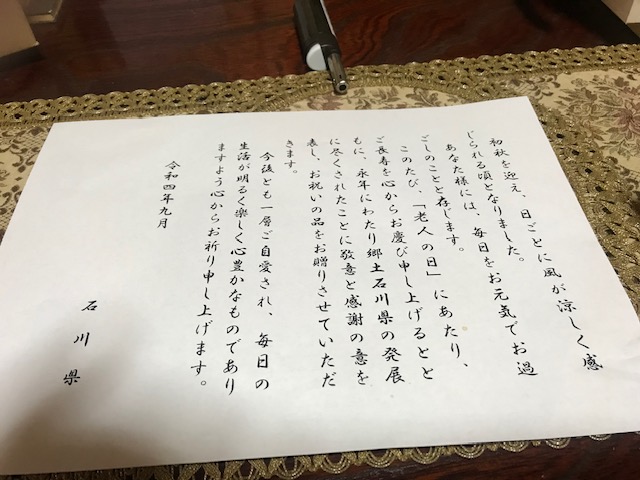 初秋を迎え、日ごとに風が涼しく感
じられる頃となりました。
あなた様には、毎日をお元気でお過
ごしのことと存じます。
このたび、「老人の日」にあたり、
ご長寿を心からお慶び申し上げるとと
もに、永年にわたり郷土石川県の発展
に尽くされたことに敬意と感謝の意を
表し、お祝いの品をお贈りさせていただ
きます。
今後とも一層ご自愛され、毎日の
生活が明るく楽しく心豊かなものであり
ますよう心からお祈り申し上げます。
令和四年九月
石川県